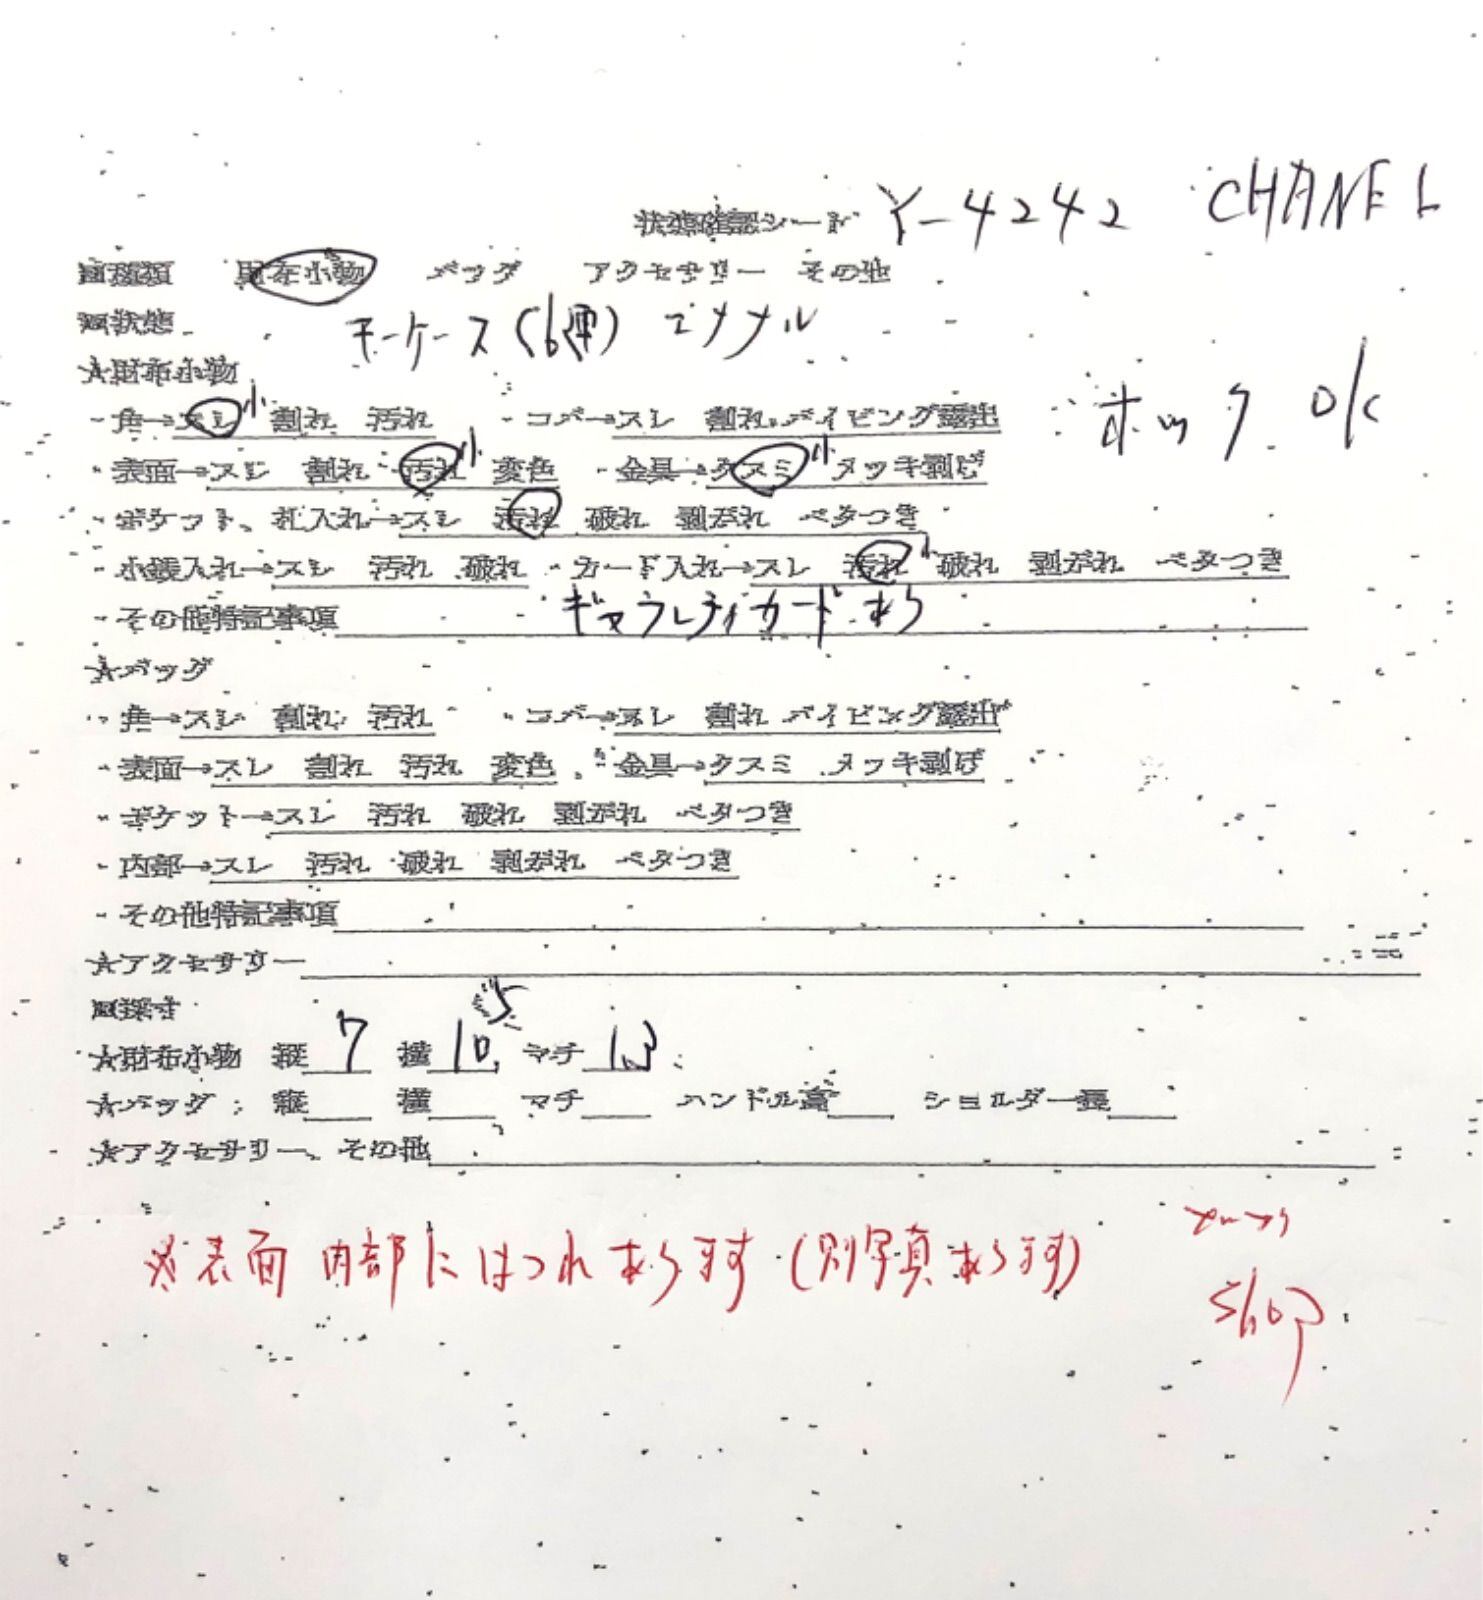 状態確認シート Y-4242 CHANEL
■種類 財布小物 バッグ アクセサリー その他
■状態 キーケース(6連) エナメル
★財布小物
・角→スレ小 割れ 汚れ ・コバ→スレ 割れ パイピング露出 ホック OK
・表面→スレ 割れ 汚れ小 変色 ・金具→クスミ小 メッキ剥げ
・ポケット、札入れ→スレ 汚れ 破れ 剥がれ ベタつき
・小銭入れ→スレ 汚れ 破れ ・カード入れ→スレ 汚れ小 破れ 剥がれ ベタつき
・その他特記事項 ギャラレティカードあり
★バッグ
・角→スレ 割れ 汚れ ・コバ→スレ 割れ パイピング露出
・表面→スレ 割れ 汚れ 変色 ・金具→クスミ メッキ剥げ
・ポケット→スレ 汚れ 破れ 剥がれ ベタつき
・内部→スレ 汚れ 破れ 剥がれ ベタつき
・その他特記事項
★アクセサリー
■採寸
★財布小物 縦 7 横 10.5 マチ 1.3
★バッグ 縦 横 マチ ハンドル高 ショルダー長
★アクセサリー、その他
※表面 内部にほつれあります(別写真あります)
shop